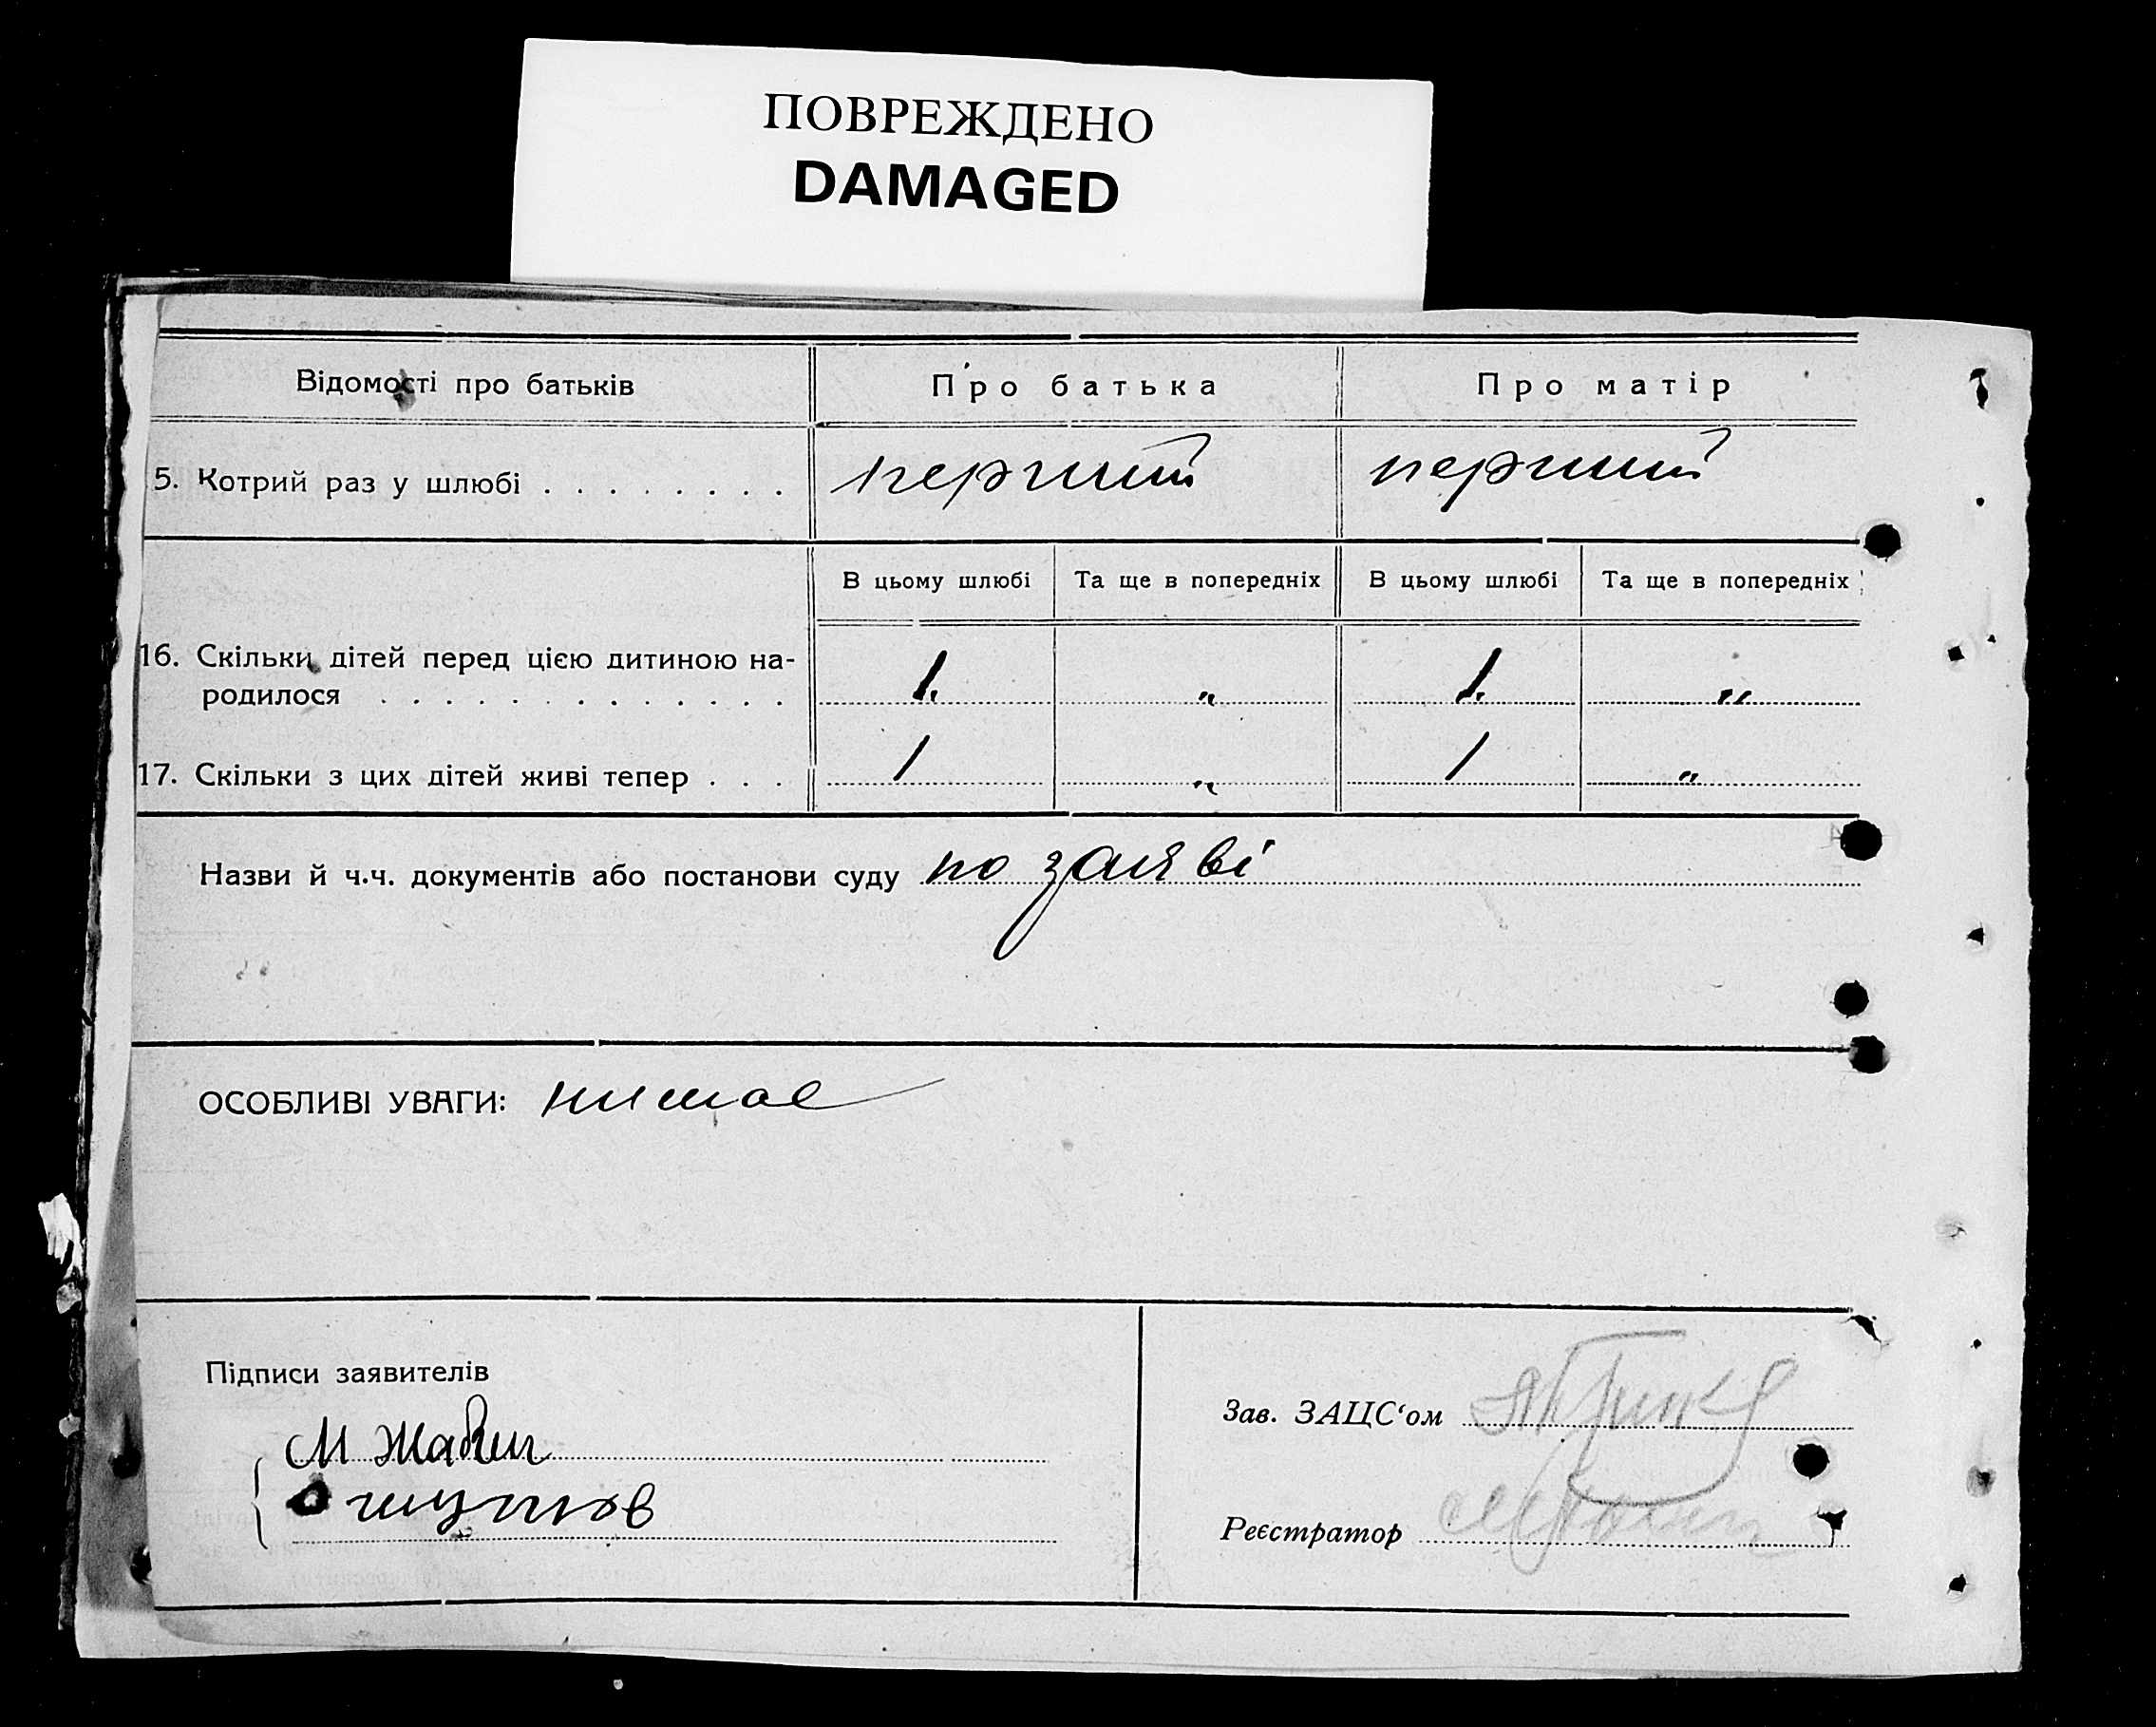 ПОВРЕЖДЕНО
DAMAGED
Відомості про батьків Про батька Про матір
5. Котрий раз у шлюбі . . . . . . . . перший перший
В цьому шлюбі Та ще в попередніх В цьому шлюбі Та ще в попередніх
16. Скільки дітей перед цією дитиною на-
родилося . . . . . . . . . . . . . 1. " 1. "
17. Скільки з цих дітей живі тепер . . . 1 " 1 "
Назви й ч.ч. документів або постанови суду по заяві
ОСОБЛИВІ УВАГИ: нимае
Підписи заявителів
Зав. ЗАЦС‘ом
М
Реєстратор